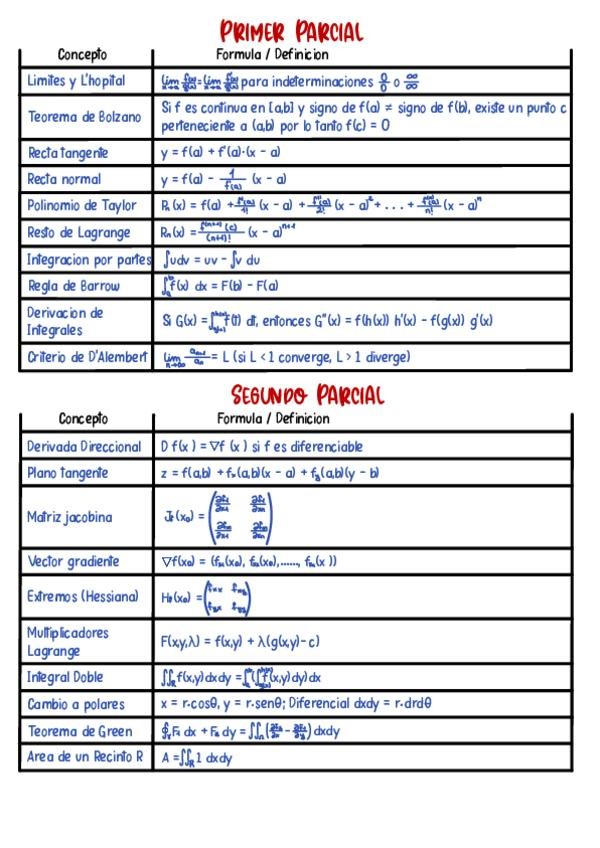 PRIMER PARCIAL
Concepto Formula / Definicion
Limites y L'hopital lim x→a f(x)/g(x) = lim x→a f'(x)/g'(x) para indeterminaciones 0/0 o ∞/∞
Teorema de Bolzano Si f es continua en [a,b] y signo de f(a) ≠ signo de f(b), existe un punto c
perteneciente a (a,b) por lo tanto f(c) = 0
Recta tangente y = f(a) + f'(a)·(x - a)
Recta normal y = f(a) - 1/f'(a) (x - a)
Polinomio de Taylor Pₙ(x) = f(a) + f'(a)/1! (x - a) + f''(a)/2! (x - a)² + . . . + fⁿ(a)/n! (x - a)ⁿ
Resto de Lagrange Rn(x) = f⁽ⁿ⁺¹⁾(c)/(n+1)! (x - a)ⁿ⁺¹
Integracion por partes ∫udv = uv - ∫v du
Regla de Barrow ∫f(x) dx = F(b) - F(a)
Derivacion de
Integrales
Si G(x) = ∫f(t) dt, entonces G''(x) = f(h(x)) h'(x) - f(g(x)) g'(x)
Criterio de D'Alembert lim n→∞ aₙ₊₁/aₙ = L (si L < 1 converge, L > 1 diverge)
SEGUNDO PARCIAL
Concepto Formula / Definicion
Derivada Direccional D f(x ) = ∇f (x ) si f es diferenciable
Plano tangente z = f(a,b) + fₓ(a,b)(x - a) + fy(a,b)(y - b)
Matriz jacobina Jf(x₀) =
Vector gradiente ∇f(x₀) = (fₓ₁(x₀), fₓ₂(x₀),......, fₓₙ(x ))
Extremos (Hessiana) Hf(x₀) = (fxx fxy
fyx fyy)
Multiplicadores
Lagrange
F(x,y,λ) = f(x,y) + λ(g(x,y)-c)
Integral Doble ∬R f(x,y)dxdy = ∫(∫f(x,y)dy)dx
Cambio a polares x = r·cosθ, y = r·senθ; Diferencial dxdy = r·drdθ
Teorema de Green ∮F₁ dx + F₂ dy = ∬(∂F₂/∂x - ∂F₁/∂y) dxdy
Area de un Recinto R A = ∬R 1 dxdy